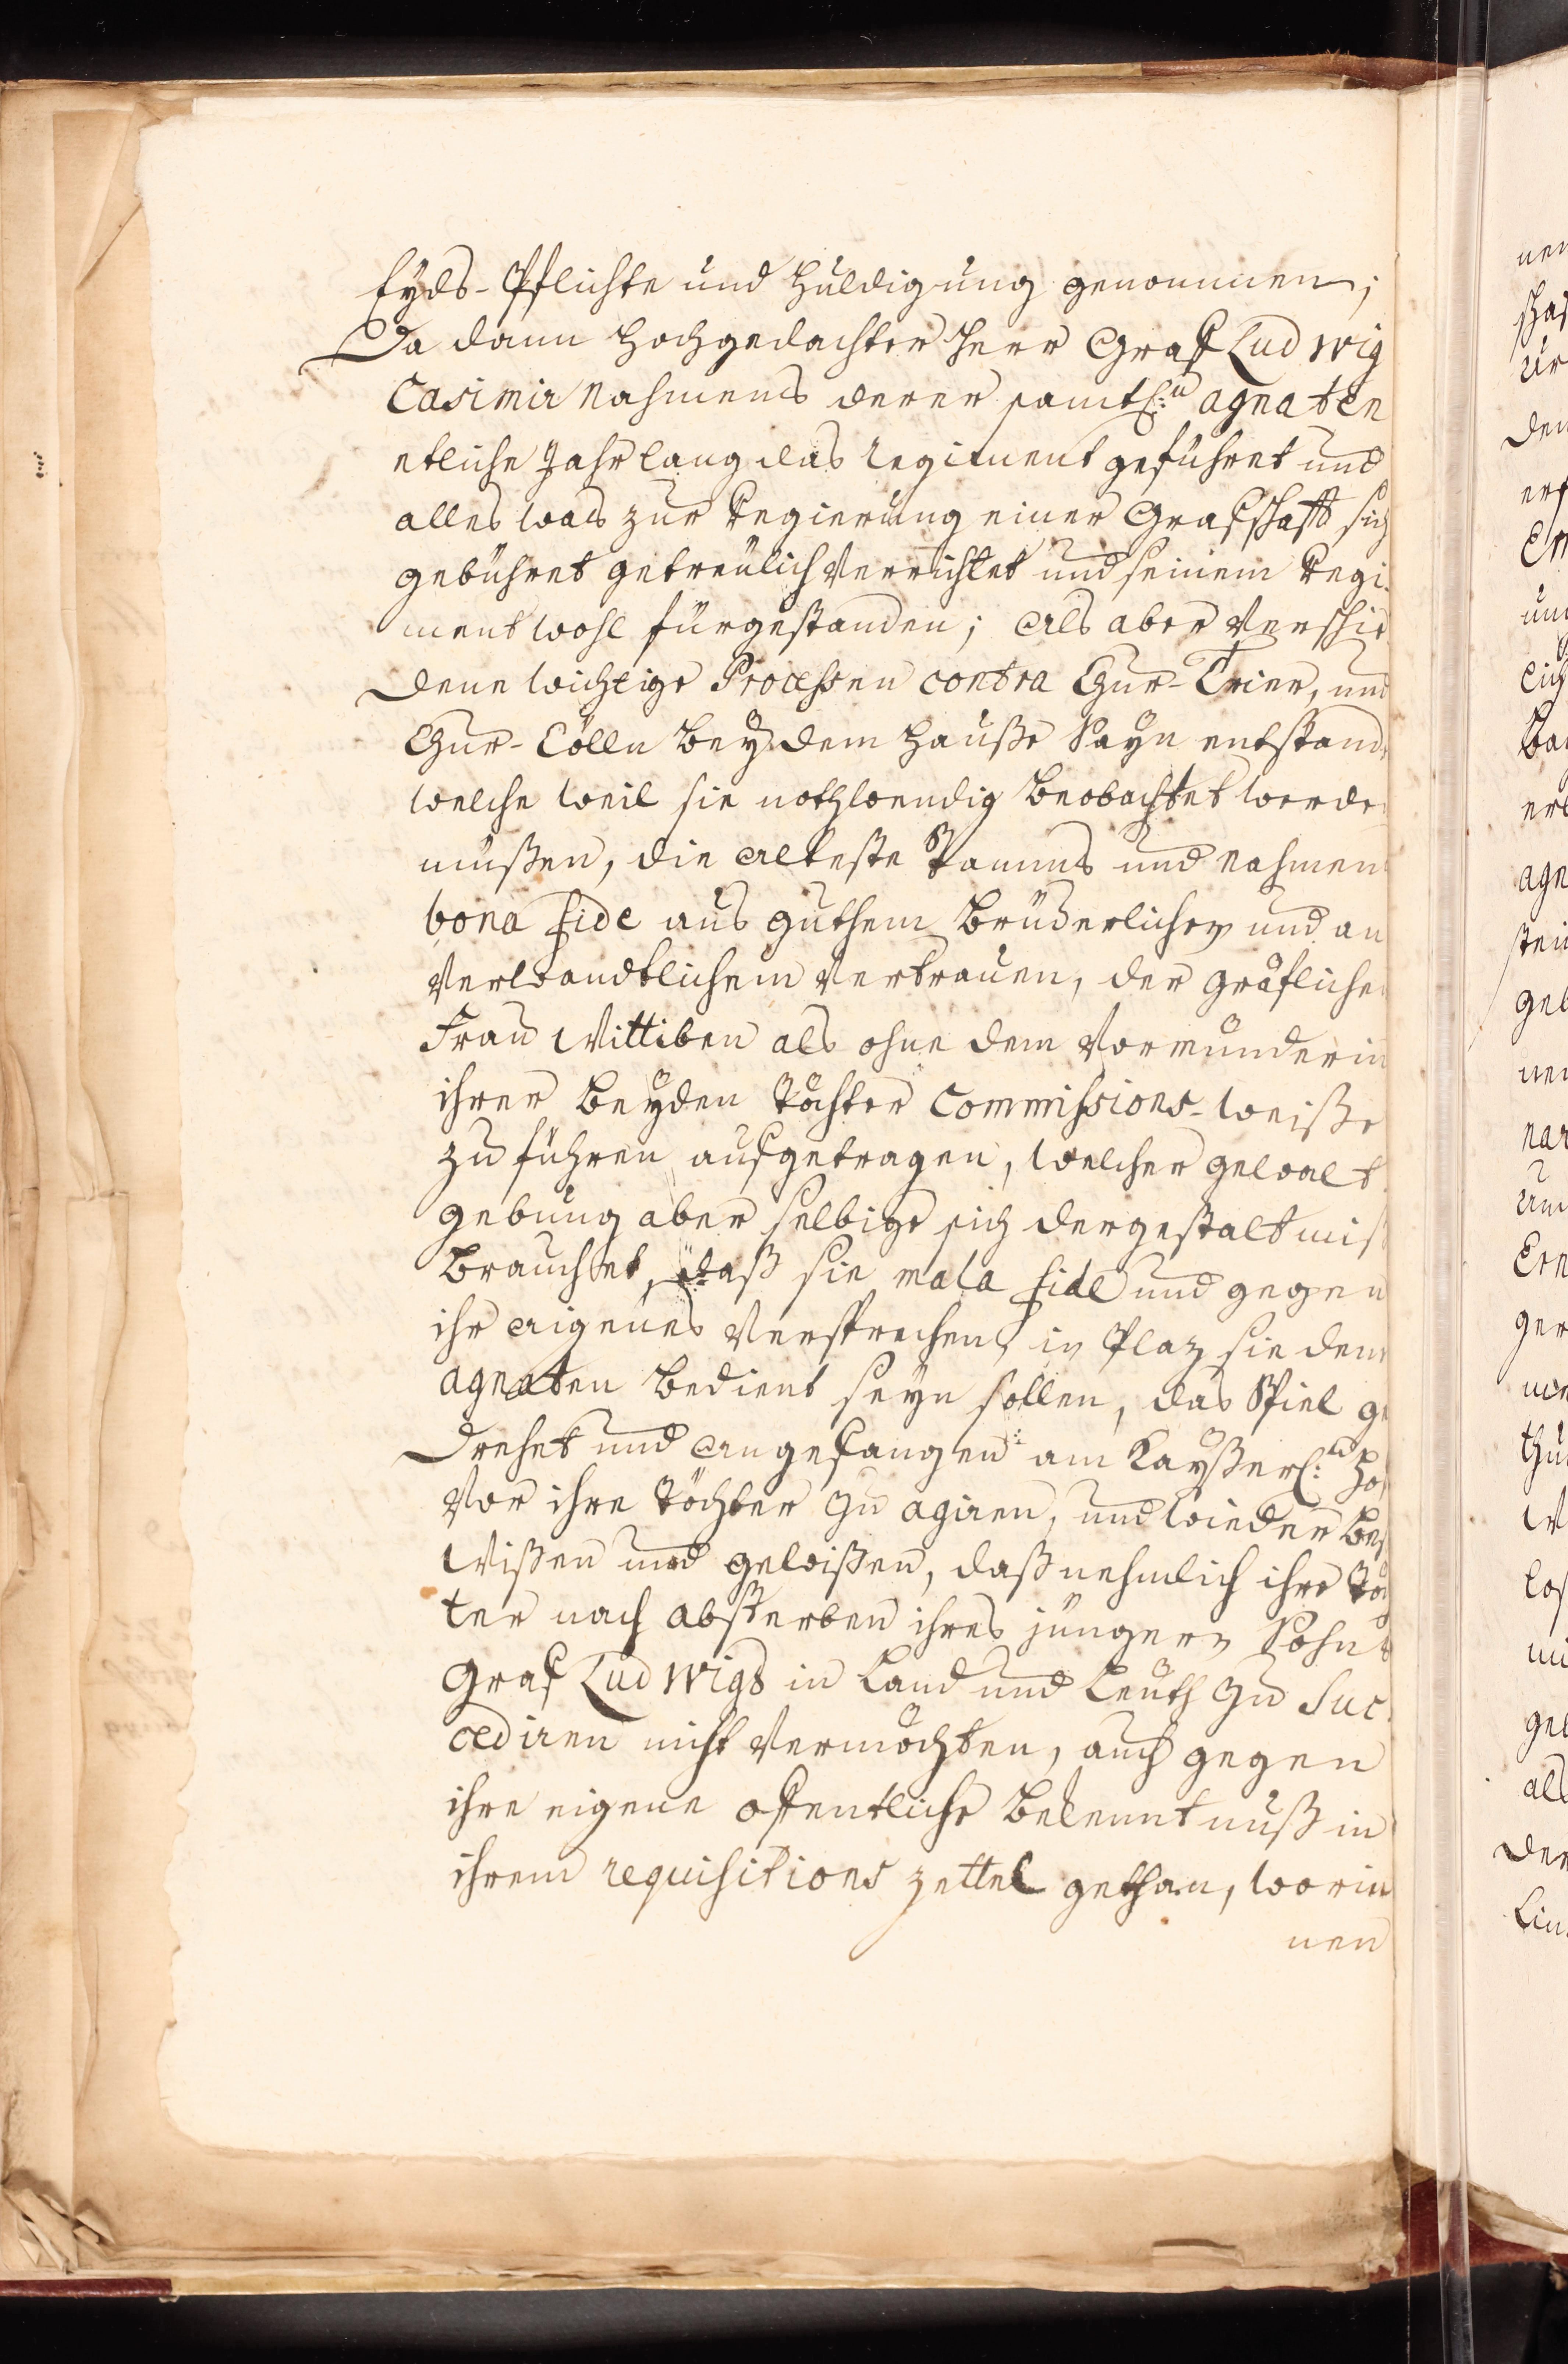 Eyds-Pflichte und Huldigung genommen;
Da dann hochgedachter Herr Graf Ludwig
Casimir Nahmens derer samtl:n agnaten
etliche Jahr lang das Regiment geführet und
alles was zur Regierung einer Grafschafft sich
gebühret getreulich verrichtet und seinem Regi-
ment wohl fürgestanden; Als aber verschie
dene wichtige Processen contra Chur-Trier, und
Chur-Cölln bey dem Hauße Sayn entstand
welche weil sie nothwendig beobachtet werde
müßen, die Alteste Stamms und Nahmen
bona fide aus guthem Brüderlichen und an
verwandtlichem Vertrauen, der gräfliche
Frau Wittiben als ohne dem Vormünderin
ihrer beyden Töchter Commissions-weiße
zu führen aufgetragen, welcher gewalt
gebung aber selbige sich dergestalt miß
brauchet, daß sie mala fide und gegen
ihr aigenes Versprechen, in Plaz sie den
agnaten bedient seyn sollen, das Spiel ge
drehet und angefangen am Kayßerl:n Hof
vor ihre Töchter zu agiren, und wieder bes
Wißen und gewißen, daß nehmlich ihre Töch
ter nach absterben ihres jüngern Sohns
Graf Ludwigs in Land und Leuth zu Suc
cediren nicht vermöchten, auch gegen
ihre eigene ofentliche Bekenntnuß in
ihrem requisitions zettel gethan, worin
nen